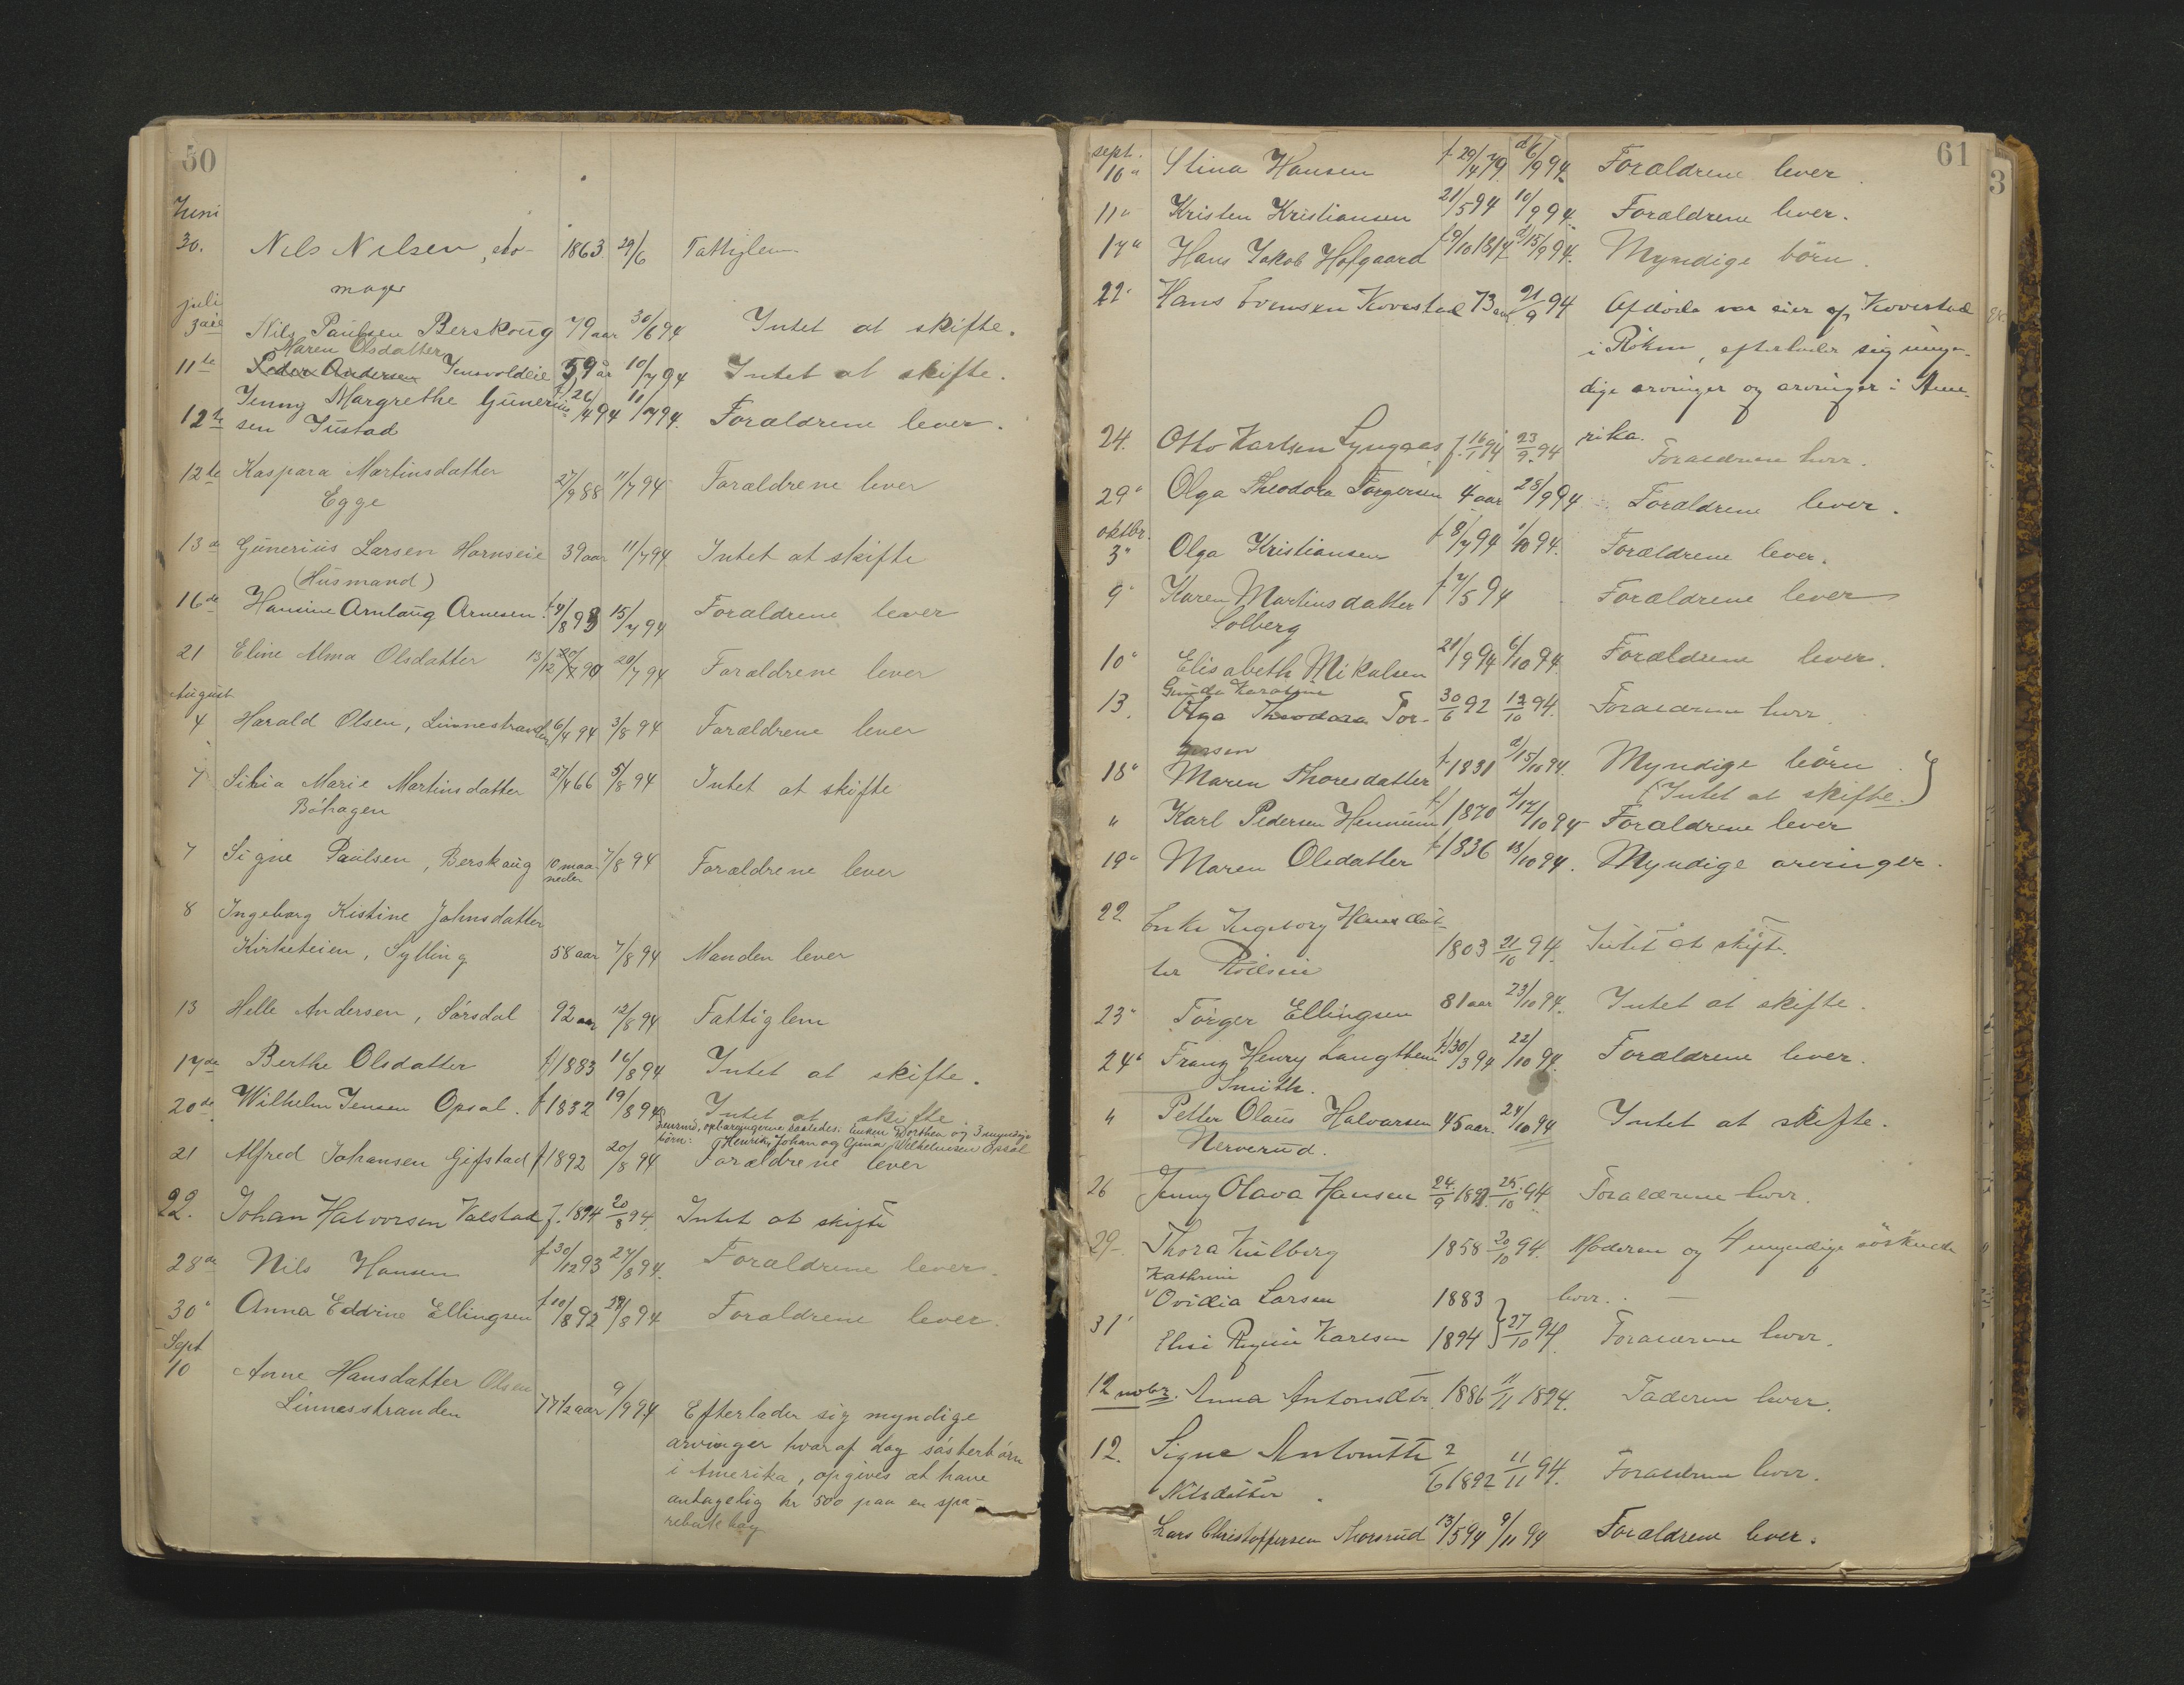 50
Juni
30. Nils Nilsen, sko- 1863 29/6 Fattiglem
mager
juli
3die Nils Paulsen Berskoug 79 aar 30/6 94 Intet at skifte.
Maren Olsdatter
11te Peder Andersen Jensvoldeie 59 år 10/7 94 Intet at skifte.
Jenny Margrethe Guneriu-
12te sen Justad 26/4 94 11/7 94. Forældrene lever.
12te Kaspara Martinsdatter 27/9 88 11/7 94 Forældrene lever
Egge
13de Gunerius Larsen Hornseie 39 aar 11/7 94 Intet at skifte
(Husmand)
16de Hansine Arnlaug Arnesen f 4/8 93 15/7 94 Forældrene lever
21 Eline Alma Olsdatter 13/12 90 20/7 94 Forældrene lever
August
4 Harald Olsen, Linnestranden 6/4 94 3/8 94 Forældrene lever
7 Silvia Marie Martinsdatter 27/4 66 5/8 94 Intet at skifte
Böhagen
7 Signe Paulsen, Berskaug 10 maa- 7/8 94 Forældrene lever
neder
8 Ingeborg Kistine Johnsdatter
Kirketeien, Sylling 58 aar 7/8 94 Manden lever
13 Helle Andersen, Sörsdal 92 aar 12/8 94 Fattiglem
17de Berthe Olsdatter f/1883 16/8 94 Intet at skifte.
20de Wilhelm Jensen Opsal. f 1832 19/8 94 Intet at skifte
opl. arvingerne saaledes: Enken Dorthea og 3 myndige
börn: Henrik, Johan og Gina Wilhelmsen Opsal
21 Alfred Johansen Gifstad f 1892 20/8 94 Forældrene lever
22. Johan Halvorsen Valstad f. 1894 20/8 94. Intet at skifte
28de Nils Hansen f 30/12 93 27/8 94. Forældrene lever.
30" Anna Eddvine Ellingsen f 10/8 92 29/8 94 Forældrene lever.
Sept
10 Anne Hansdatter Olsen
Linnesstranden 77 1/2 aar 9/9 94 Efterlader sig myndige
arvinger hvoraf dog sösterbörn
i Amerika, opgives at have
antagelig kr 500 paa en spa-
rebankbog
61
3
sept.
10" Stina Hansen f 29/4 79. d 6/9 94. Forældrene lever.
11" Kristen Kristiansen 21/5 94 10/9 94. Forældrene lever.
17" Hans Jakob Hofgaard f 9/10 1814 d/15/9 94. Myndige börn.
22" Hans Evensen Kovestad 73 aar 21/9 94 Afdöde var eier af Kovestad
i Röken, efterlader sig myn-
dige arvinger og arvinger i Ame-
rika.
24. Otto Karlsen Lyngaas f. 16/1 94 23/9 94 Forældrene lever.
29" Olga Theodora Torgersen 4 aar 28/9 94 Forældrene lever.
oktbr.
3" Olga Kristiansen f 8/7 94 1/10 94. Forældrene lever.
9" Karen Martinsdatter f 7/5 94 Forældrene lever
Solberg
10" Elisabeth Mikalsen 21/9 94 6/10 94. Forældrene lever.
Gunda Karoline
13. Olga Theodora Tor- 30/6 92 12/10 94. Forældrene lever.
gersen
18" Maren Thoresdatter f 1831 d/15/10 94. Myndige börn.
(Intet at skifte.)
" Karl Pedersen Hennum f/1870 d/17/10 94 Forældrene lever
19" Maren Olsdatter f 1836 13/10 94. Myndige arvinger.
22 Enke Ingeborg Hansdat-
ter 1803 21/10 94. Intet at skifte.
23" Torger Ellingsen 81 aar 23/10 94. Intet at skifte.
24" Franz Henry Langthem f/30/3 94 22/10 94. Forældrene lever.
Smith.
" Petter Olaus Halvorsen 45 aar. 24/10 94 Intet at skifte.
Nerverud.
26 Jenny Olava Hansen 24/9 1893. 25/10 94 Forældrene lever.
29- Thora Kulberg 1858 20/10 94. Moderen og 4 myndige sösknde
Kathrine
Ovidia Larsen 1883 lever.
31' Elise Regine Karlsen 1894 } 27/10 94. Forældrene lever.
12 novbr. Anna Antonsdtr. 1886 11/11 1894. Faderen lever.
12. Signe Antonette 2/6 1892 11/11 94. Forældrene lever.
Nilsdatter.
Lars Christoffersen Morsrud 13/5 94 9/11 94 Forældrene lever.